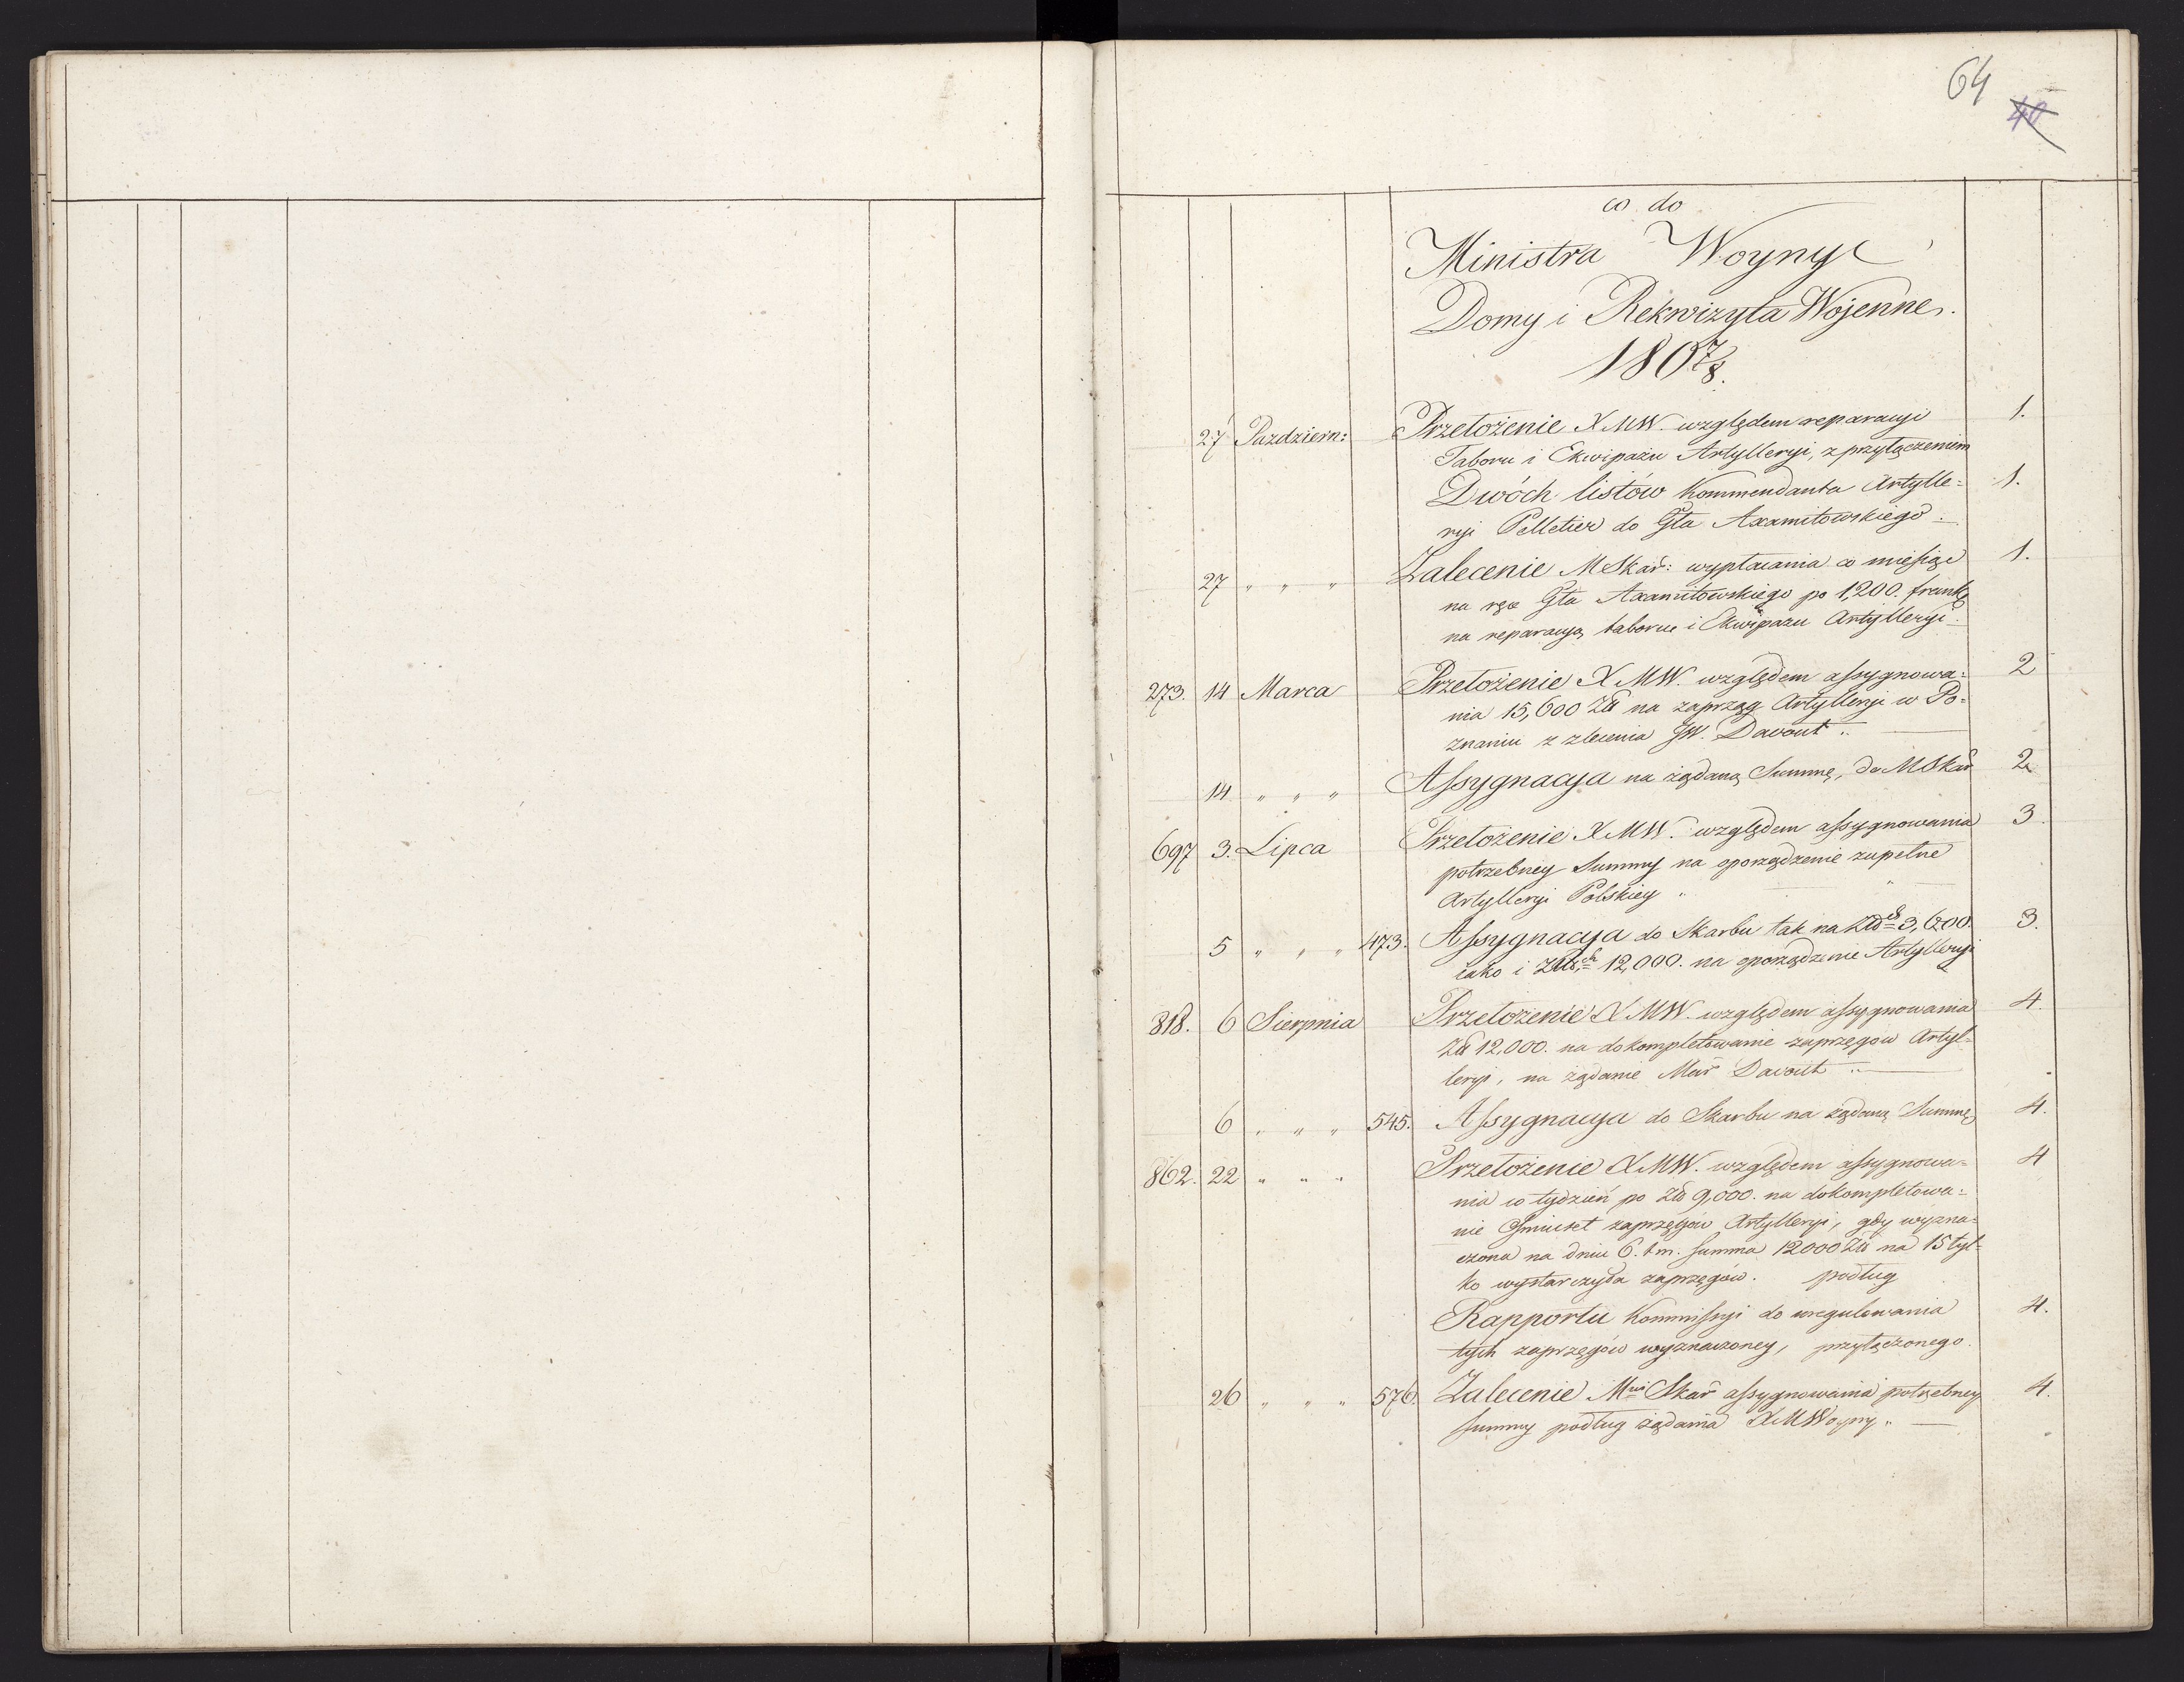 64
40
co do
Ministra Woyny
Domy i Rekwizyta Wojenne.
1807/8.
27 Pazdziern: Przełożenie XMW. względem reparacyi 1.
Taboru i Ekwipażu Artylleryi, z przyłączeniem
Dwóch listów Kommendanta Artylle= 1.
ryi Pelletier do Gła Axamitowskiego.
27 " " " Zalecenie MSkar: wypłacania co miesiąc 1.
na ręce Gła Axamitowskiego po 1,200. frank
na reparacyą taboru i Ekwipażu Artylleryi.
273. 14 Marca Przełożenie XMW. względem assygnowa= 2
nia 15,600 Zł na zaprząg Artylleryi w Po=
znaniu z zlecenia JW. Davout "
14 " " " Assygnacya na żądaną Summę, do MSkar 2
697 3. Lipca Przełożenie XMW. względem assygnowania 3.
potrzebney Summy na oporządzenie zupełne
Artylleryi Polskiey "
5 " " " 473. Assygnacya do Skarbu tak na Zło 3,600. 3.
iako i Złch 12,000. na oporządzenie Artylleryi
818. 6 Sierpnia Przełożenie XMW. względem assygnowania 4.
Zł 12,000. na dokompletowanie zaprzęgów Artyl=
leryi, na żądanie Mar Davout "
6 " " " 545. Assygnacya do Skarbu na żądaną Summę 4.
862. 22 " " " Przełożenie XMW. względem assygnowa= 4
nia co tydzień po Zło 9,000. na dokompletowa=
nie Ośmiuset zaprzęgów Artylleryi, gdy wyzna=
czona na dniu 6. t m. summa 12000 Zło na 15 tyl=
ko wystarczyła zaprzęgów. podług
Rapportu Kommissyi do uregulowania 4.
tych zaprzęgów wyznaczoney, przyłączonego.
26 " " " 576. Zalecenie Mwi Skar assygnowania potrzebney 4.
summy podług żądania XMWoyny "